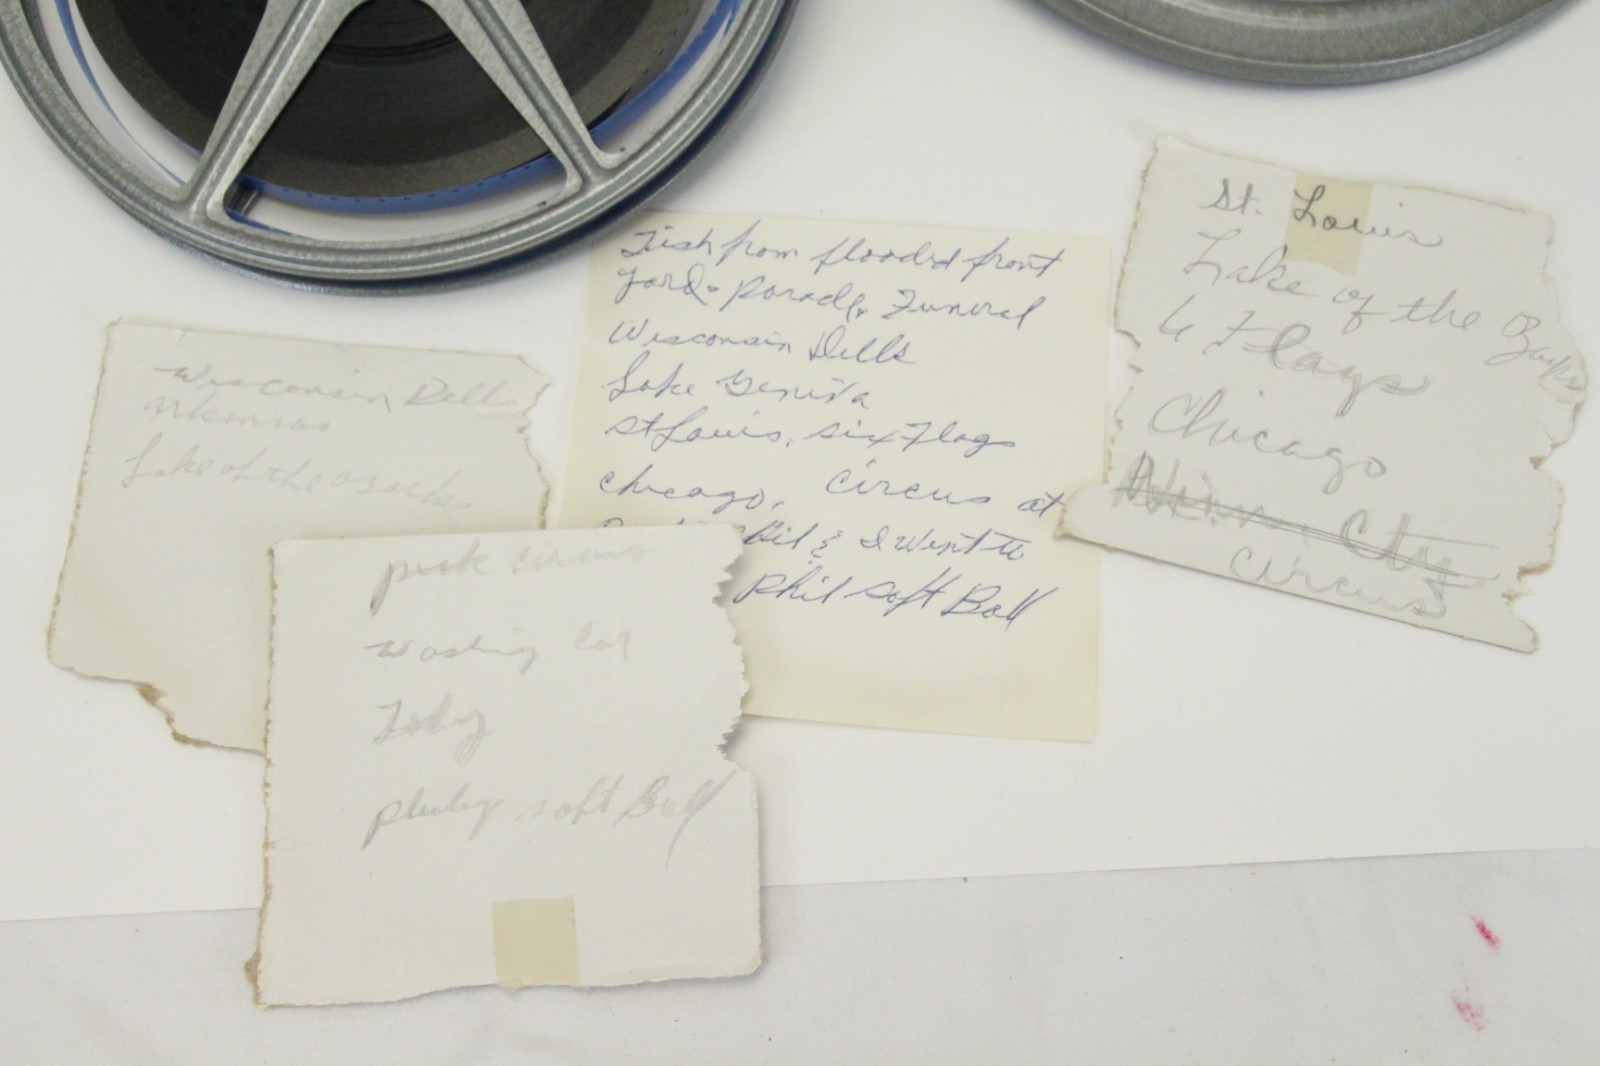 Wisconsin Dells
arkansas
Lake of the ozarks
park circus
washing car
Toby
soft Ball
Fish from flooded front
yard - parade, Funeral
Wisconsin Dells
Lake Geniva
st Louis, six Flags
chicago, circus at
Phil & I went to
Phil soft Ball
St. Louis
Lake of the Ozarks
6 Flags
Chicago
City
circus